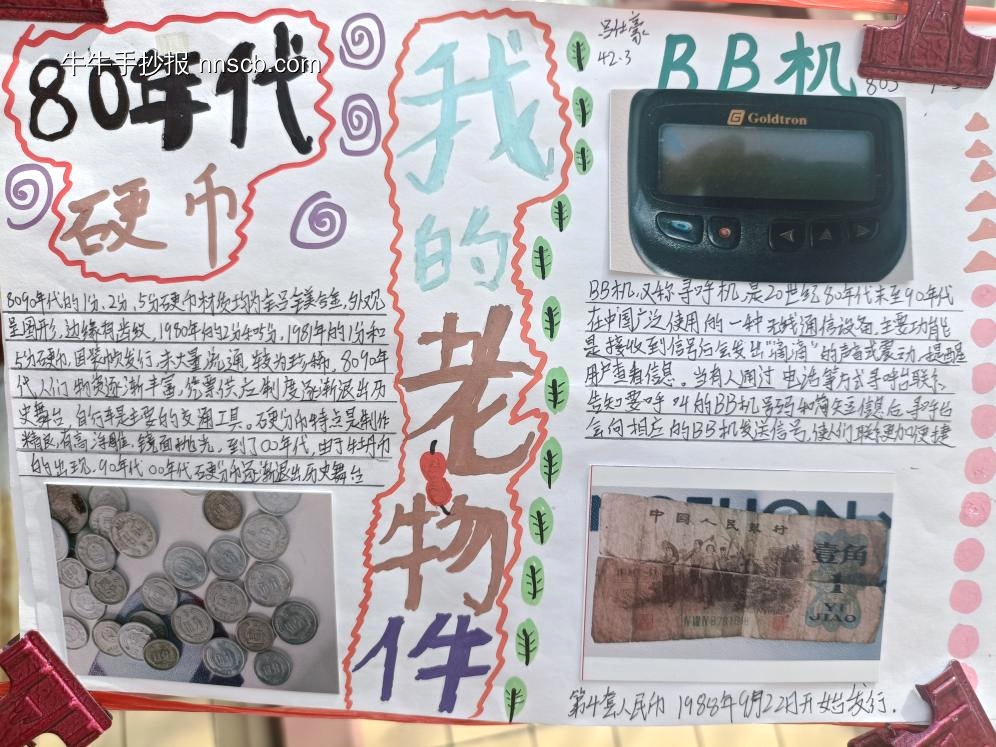 牛牛手抄报 nnscb.com
80年代
硬币
我的老物件
42.3
BB机
Goldtron
8090年代的1分、2分、5分硬币材质均为
呈圆形,边缘有齿纹,1980年的2分和5分,1981年的1分和
5分硬币,因装帧发行,未大量流通,较为珍稀。8090年
代人们物资逐渐丰富,凭票供应制度逐渐退出历
史舞台,自行车是主要的交通工具。硬分币特点是制作
精良有高浮雕,镜面抛光。到了00年代,由于
的出现,90年代00年代硬分币逐渐退出历史舞台
BB机,又称寻呼机,是20世纪80年代末至90年代
在中国广泛使用的一种无线通信设备,主要功能
是接收到信号后会发出"滴滴"的声音或震动,提醒
用户查看信息。当有人通过电话等方式寻呼台联係
告知要呼叫的BB机号码和简短信息后,寻呼台
会向相应的BB机发送信号,使人们联係更加便捷
中国人民银行
壹角
1
YI
JIAO
第4套人民币 1988年9月22日开始发行.